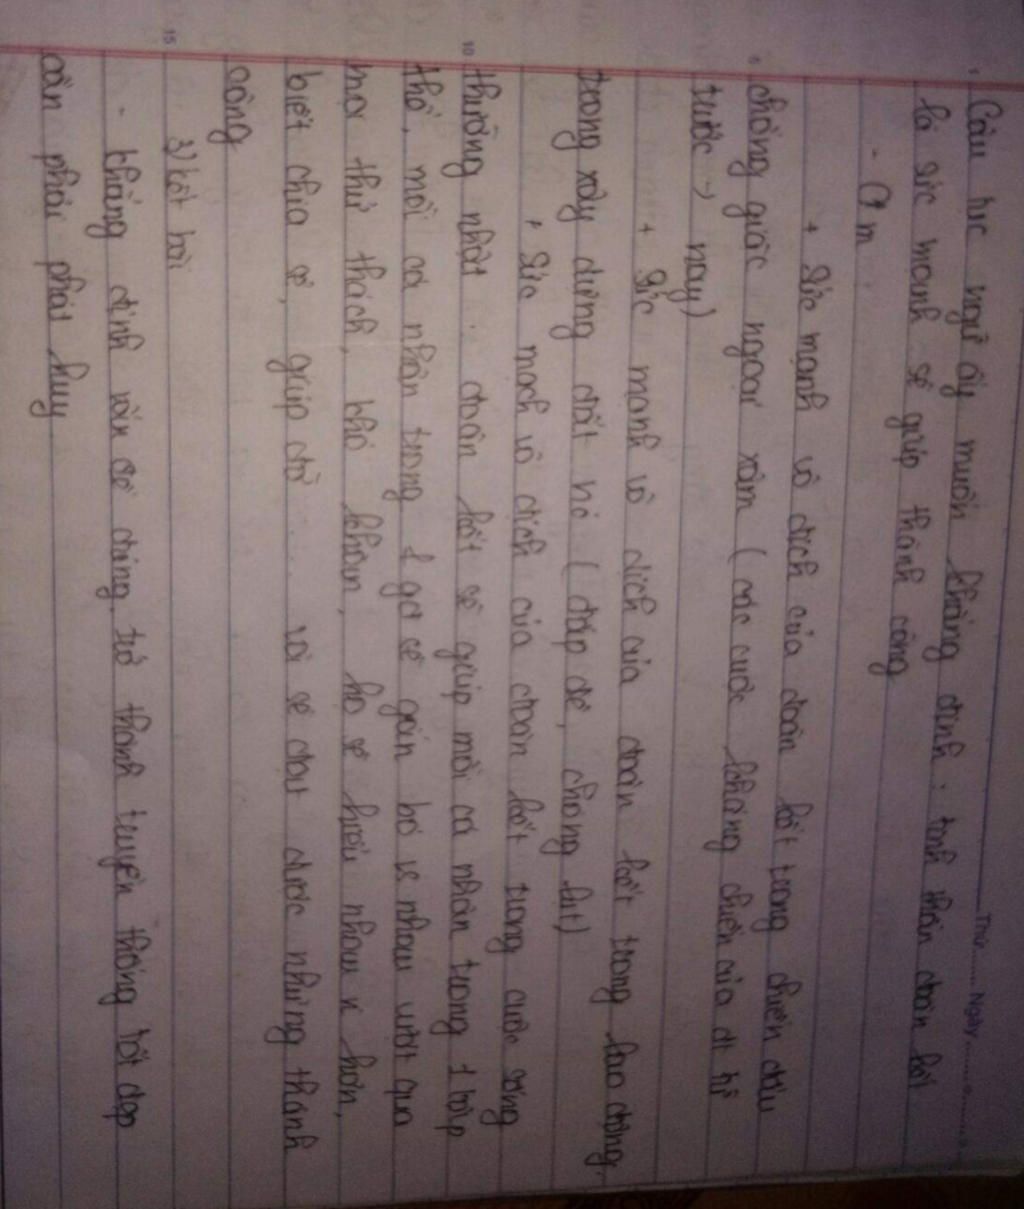 Thứ ........ Ngày ........
Câu tục ngữ ấy muốn khẳng định : tinh thần đoàn kết
là sức mạnh sẽ giúp thành công
- CM
+ Sức mạnh vô địch của đoàn kết trong chiến đấu
5
chống giặc ngoại xâm ( các cuộc kháng chiến của dt từ
trước → nay)
+ Sức mạnh vô địch của đoàn kết trong lao động,
trong xây dựng đất nc ( đắp đê, chống lụt)
+ Sức mạch vô địch của đoàn kết trong cuộc sống
10
thường nhật . . đoàn kết sẽ giúp mỗi cá nhân trong 1 tập
thể, mỗi cá nhân trong 1 gđ sẽ gắn bó vs nhau vượt qua
mọi thử thách, khó khăn, họ sẽ hiểu nhau n hơn,
biết chia sẻ, giúp đỡ .... và sẽ đạt được những thành
công
15
3) kết bài
- khẳng định vấn đề đúng, trở thành truyền thống tốt đẹp
cần phải phát huy